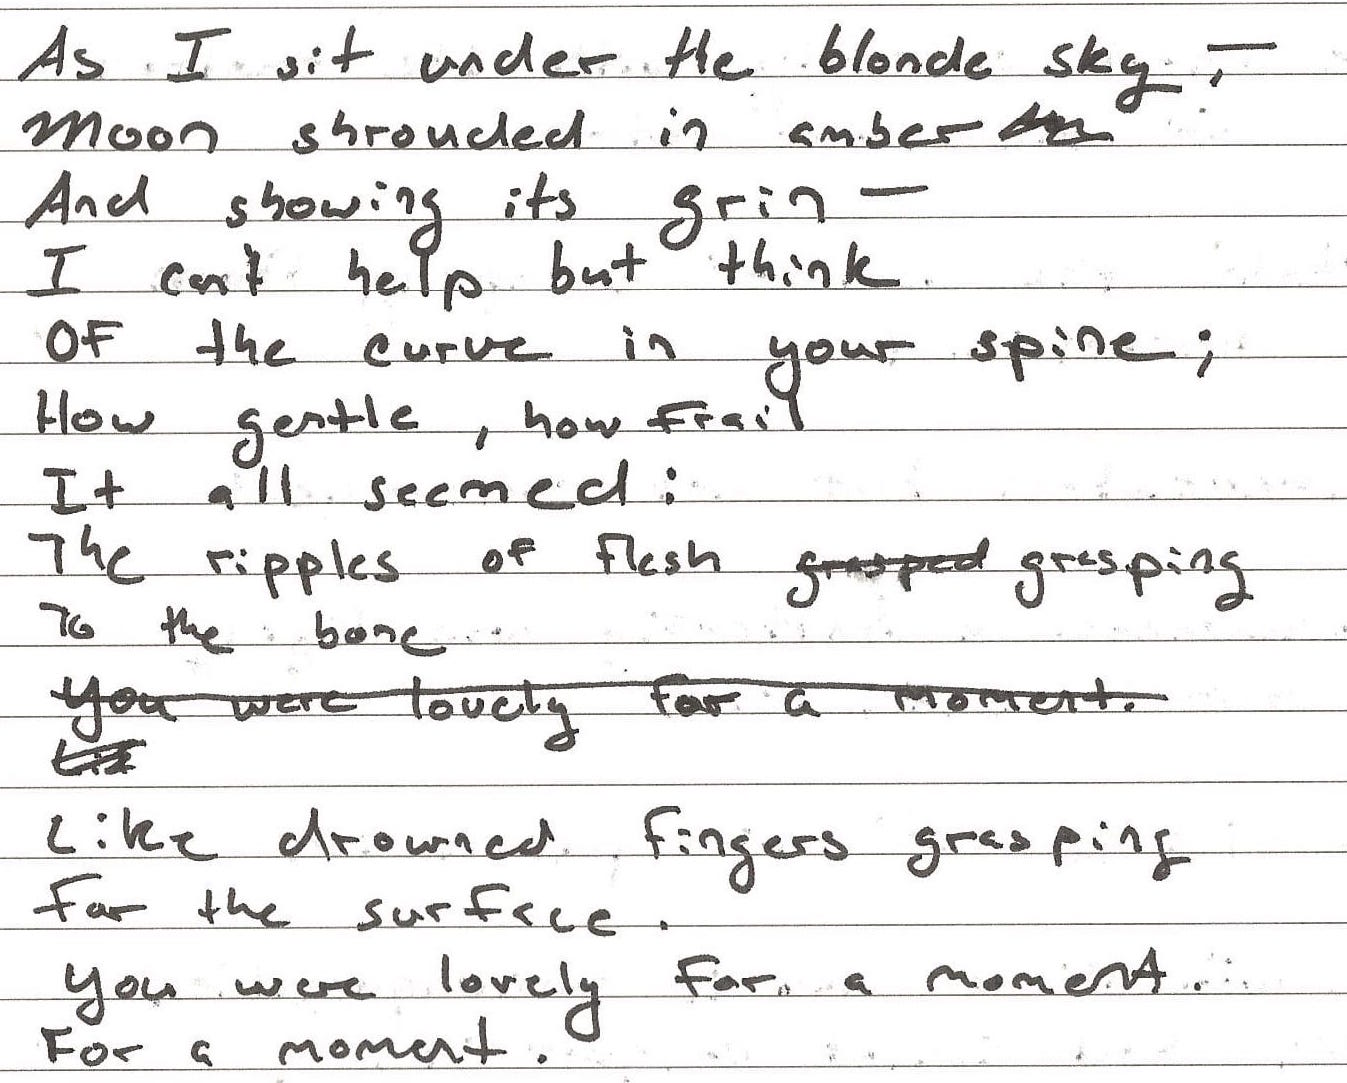 As I sit under the blonde sky, —
Moon shrouded in amber
And showing its grin —
I can't help but think
Of the curve in your spine;
How gentle, how frail
It all seemed:
The ripples of flesh grasped grasping
To the bone
You were lovely for a moment.
Like drowned fingers grasping
For the surface.
You were lovely for a moment.
For a moment.